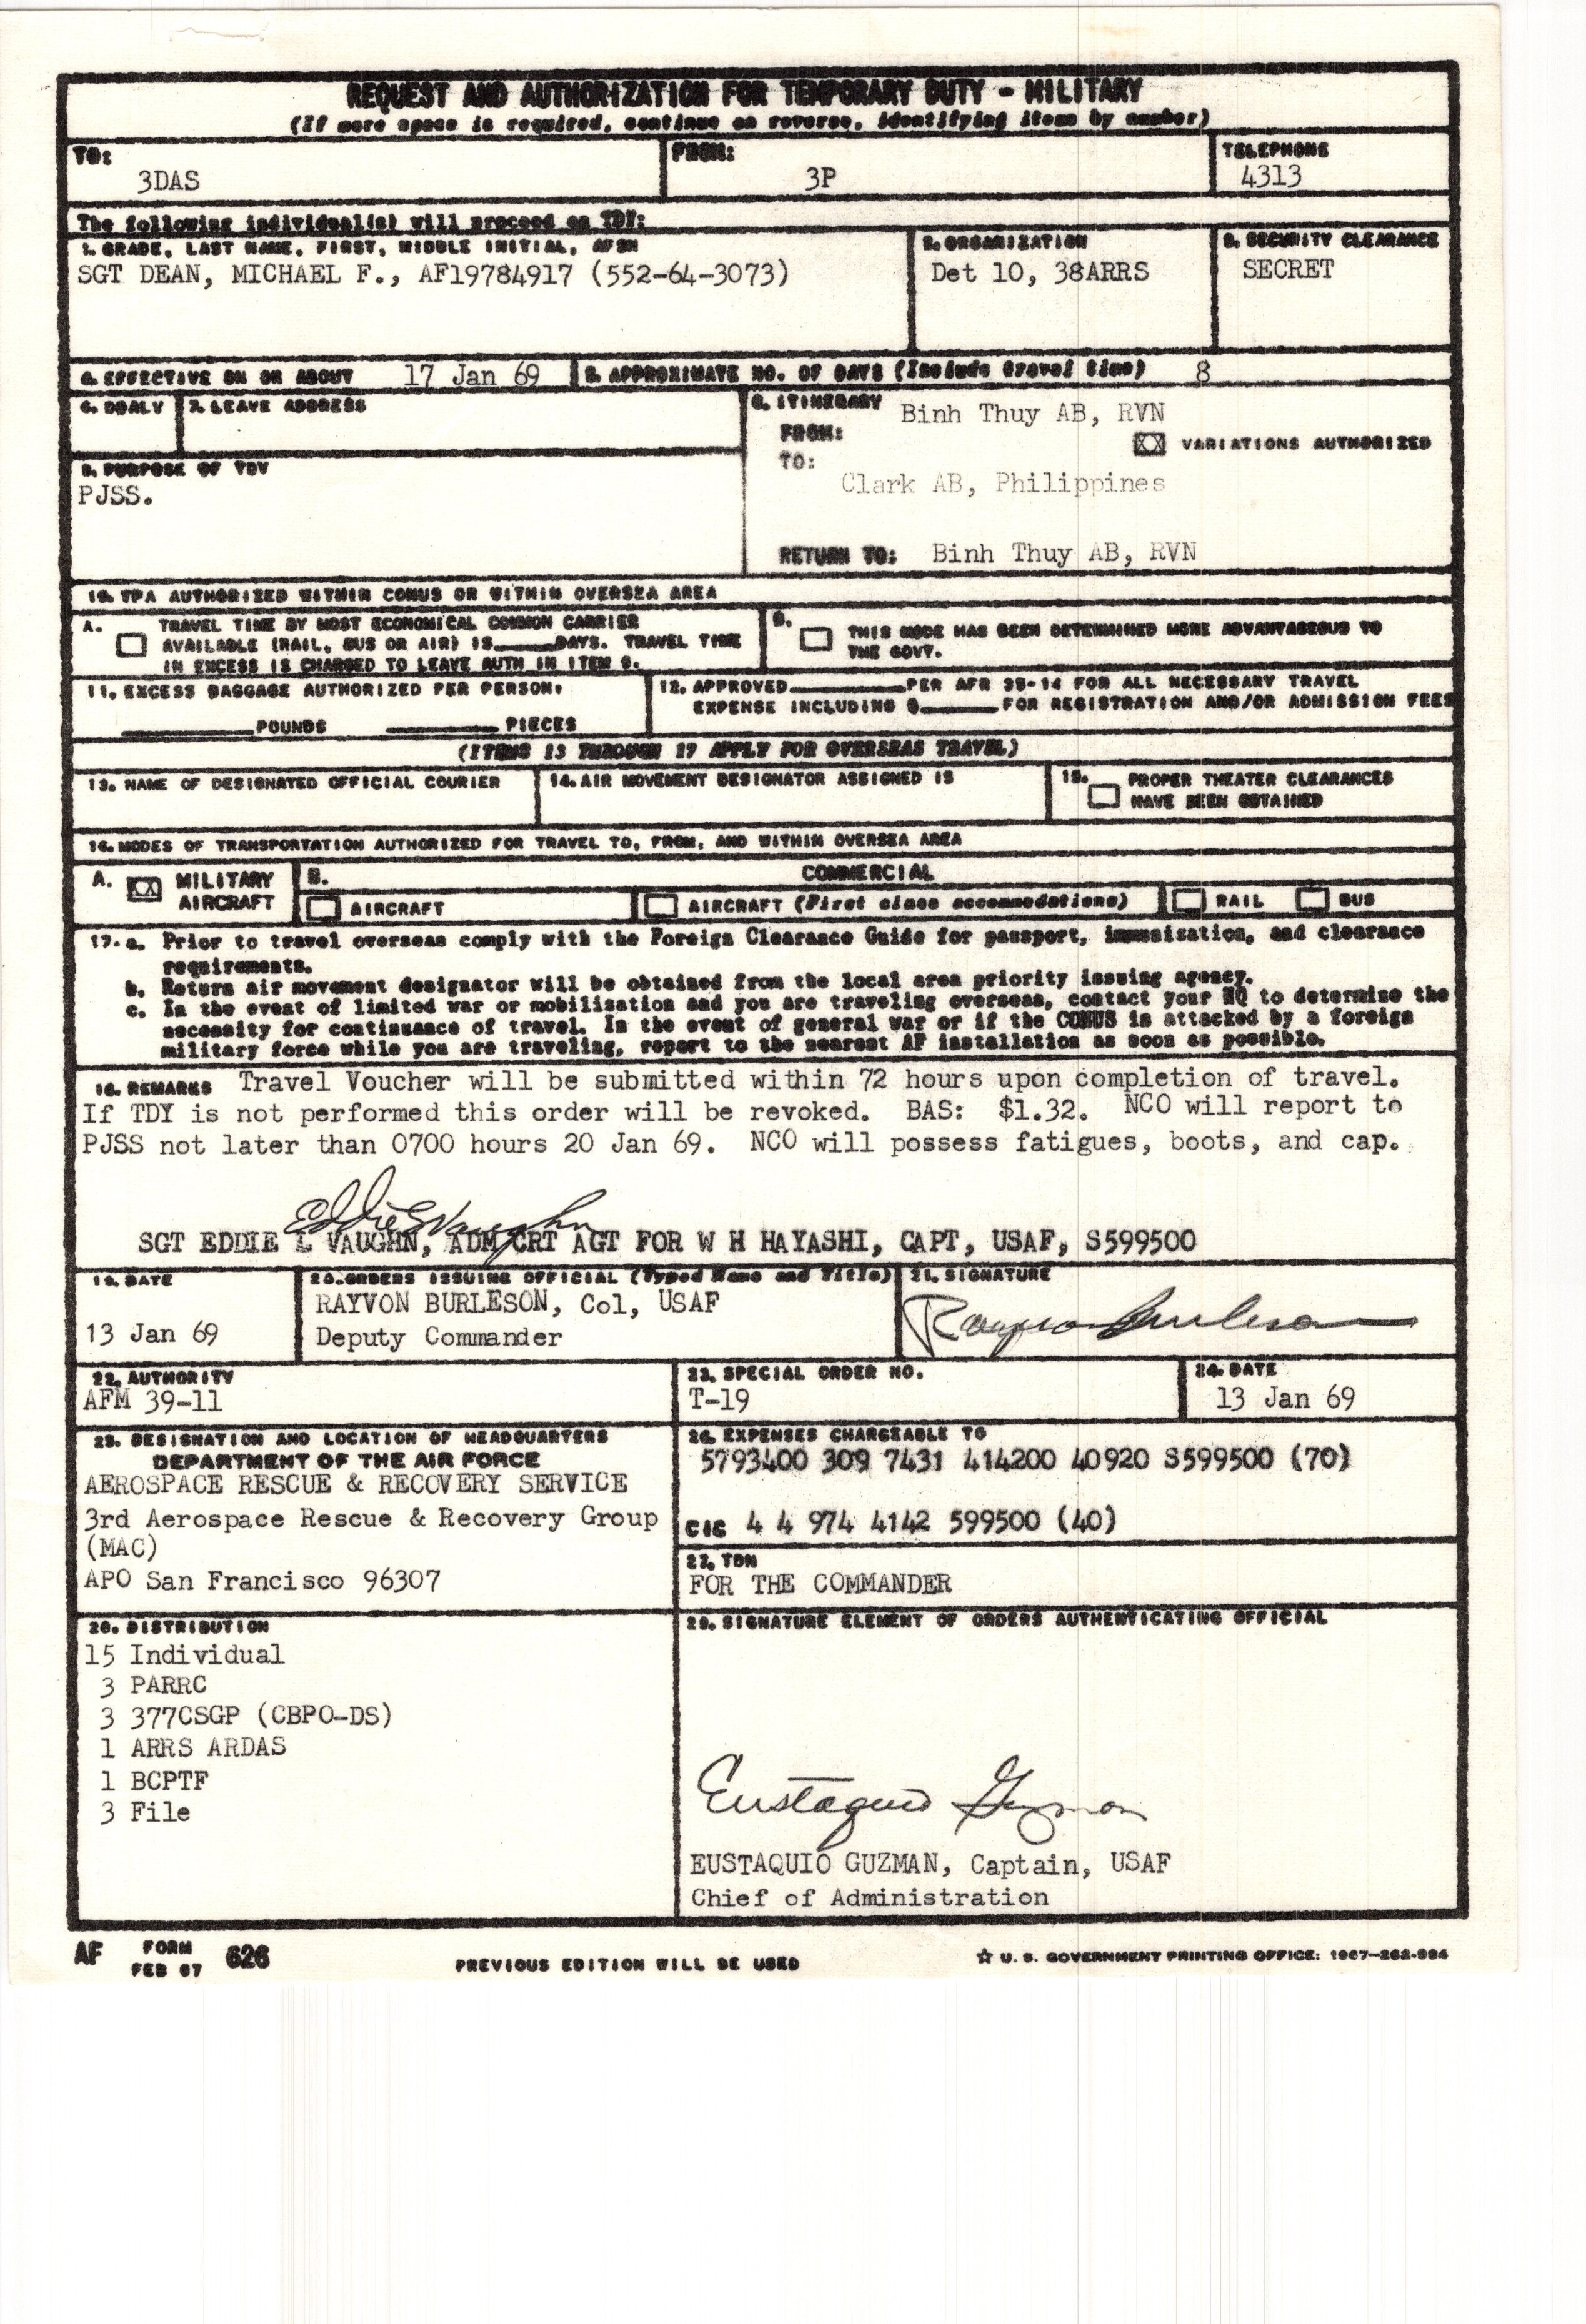 REQUEST AND AUTHORIZATION FOR TEMPORARY DUTY - MILITARY
(If more space is required, continue on reverse, identifying items by number)
TO: FROM: TELEPHONE
3DAS 3P 4313
The following individual(s) will proceed on TDY:
1. GRADE, LAST NAME, FIRST, MIDDLE INITIAL, AFSN 2. ORGANIZATION 3. SECURITY CLEARANCE
SGT DEAN, MICHAEL F., AF19784917 (552-64-3073) Det 10, 38ARRS SECRET
4. EFFECTIVE ON OR ABOUT 17 Jan 69 5. APPROXIMATE NO. OF DAYS (Include travel time) 8
6. DDALV 7. LEAVE ADDRESS 8. ITINERARY Binh Thuy AB, RVN
FROM: XX VARIATIONS AUTHORIZED
9. PURPOSE OF TDY TO:
PJSS. Clark AB, Philippines
RETURN TO: Binh Thuy AB, RVN
10. TPA AUTHORIZED WITHIN CONUS OR WITHIN OVERSEA AREA
A. TRAVEL TIME BY MOST ECONOMICAL COMMON CARRIER
AVAILABLE (RAIL, BUS OR AIR) IS DAYS. TRAVEL TIME
IN EXCESS IS CHARGED TO LEAVE AUTH IN ITEM 6.
B. THIS MODE HAS BEEN DETERMINED MORE ADVANTAGEOUS TO
THE GOVT.
11. EXCESS BAGGAGE AUTHORIZED PER PERSON.
POUNDS PIECES
12. APPROVED PER AFR 35-14 FOR ALL NECESSARY TRAVEL
EXPENSE INCLUDING $ FOR REGISTRATION AND/OR ADMISSION FEES
(ITEMS 13 THROUGH 17 APPLY FOR OVERSEAS TRAVEL)
13. NAME OF DESIGNATED OFFICIAL COURIER 14. AIR MOVEMENT DESIGNATOR ASSIGNED IS 15. PROPER THEATER CLEARANCES
HAVE BEEN OBTAINED
16. MODES OF TRANSPORTATION AUTHORIZED FOR TRAVEL TO, FROM, AND WITHIN OVERSEA AREA
A. XX MILITARY
AIRCRAFT
B. COMMERCIAL
AIRCRAFT AIRCRAFT (First class accommodations) RAIL BUS
17. a. Prior to travel overseas comply with the Foreign Clearance Guide for passport, immunization, and clearance
requirements.
b. Return air movement designator will be obtained from the local area priority issuing agency.
c. In the event of limited war or mobilization and you are traveling overseas, contact your HQ to determine the
necessity for continuance of travel. In the event of general war or if the CONUS is attacked by a foreign
military force while you are traveling, report to the nearest AF installation as soon as possible.
18. REMARKS Travel Voucher will be submitted within 72 hours upon completion of travel.
If TDY is not performed this order will be revoked. BAS: $1.32. NCO will report to
PJSS not later than 0700 hours 20 Jan 69. NCO will possess fatigues, boots, and cap.
Eddie L Vaughn
SGT EDDIE L VAUGHN, ADM CRT AGT FOR W H HAYASHI, CAPT, USAF, S599500
19. DATE 20. ORDERS ISSUING OFFICIAL (Typed Name and Title) 21. SIGNATURE
RAYVON BURLESON, Col, USAF
13 Jan 69 Deputy Commander Rayvon Burleson
22. AUTHORITY 23. SPECIAL ORDER NO. 24. DATE
AFM 39-11 T-19 13 Jan 69
25. DESIGNATION AND LOCATION OF HEADQUARTERS
DEPARTMENT OF THE AIR FORCE
AEROSPACE RESCUE & RECOVERY SERVICE
3rd Aerospace Rescue & Recovery Group
(MAC)
APO San Francisco 96307
26. EXPENSES CHARGEABLE TO
5793400 309 7431 414200 40920 S599500 (70)
CIC 4 4 974 4142 599500 (40)
27. TDN
FOR THE COMMANDER
28. DISTRIBUTION
15 Individual
3 PARRC
3 377CSGP (CBPO-DS)
1 ARRS ARDAS
1 BCPTF
3 File
29. SIGNATURE ELEMENT OF ORDERS AUTHENTICATING OFFICIAL
Eustaquio Guzman
EUSTAQUIO GUZMAN, Captain, USAF
Chief of Administration
AF FORM FEB 67 626 PREVIOUS EDITION WILL BE USED ☆ U. S. GOVERNMENT PRINTING OFFICE: 1967-262-994